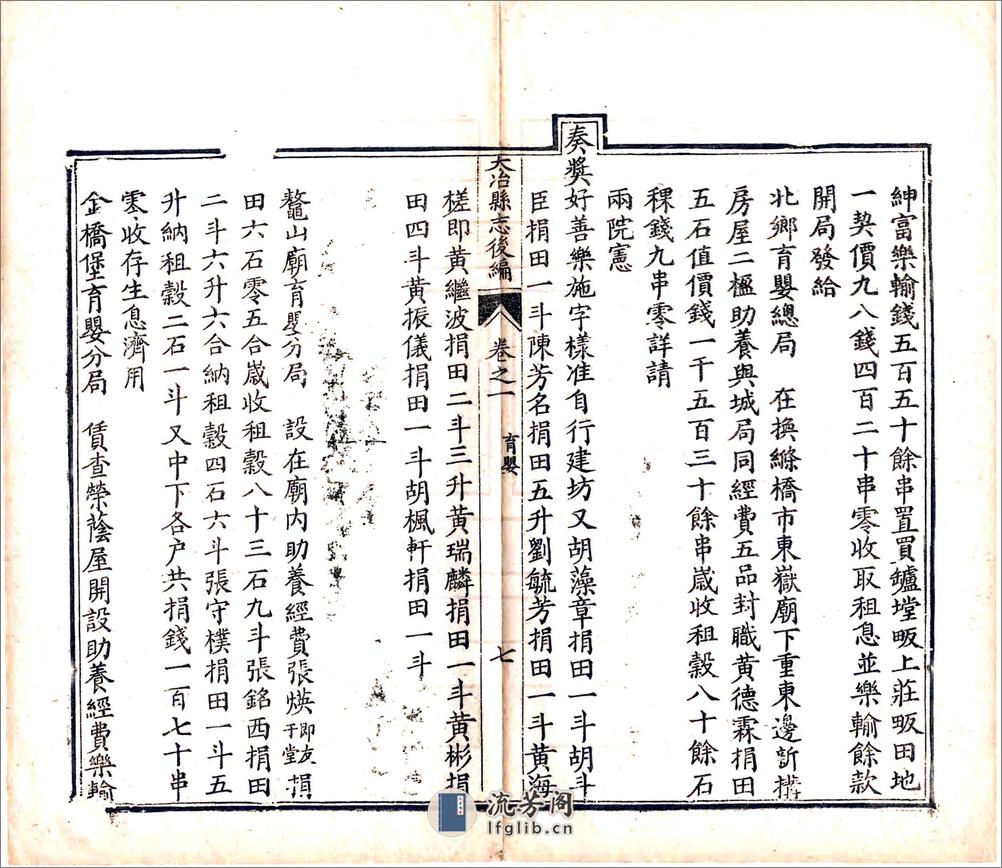 紳富樂輸錢五百五十餘串置買鑪堂畈上莊畈田地
一契價九八錢四百二十串零收取租息並樂輸餘款
開局發給
北鄉育嬰總局　在換縧橋市東嶽廟下重東邊新構
房屋二楹助養與城局同經費五品封職黃德霖捐田
五石值價錢一千五百三十餘串歲收租穀八十餘石
稞錢九串零詳請
兩院憲
奏獎好善樂施字樣准自行建坊又胡藻章捐田一斗胡斗
臣捐田一斗陳芳名捐田五升劉毓芳捐田一斗黃海
大冶縣志後編　卷之一　育嬰　七
槎即黃繼波捐田二斗三升黃瑞麟捐田一斗黃彬捐
田四斗黃振儀捐田一斗胡楓軒捐田一斗
鼇山廟育嬰分局　設在廟內助養經費張煐即友于堂捐
田六石零五合歲收租穀八十三石九斗張銘西捐田
二斗六升六合納租穀四石六斗張守樸捐田一斗五
升納租穀二石一斗又中下各戶共捐錢一百七十串
零收存生息濟用
金橋堡育嬰分局　賃查榮蔭屋開設助養經費樂輸
流芳阁
lfglib.cn